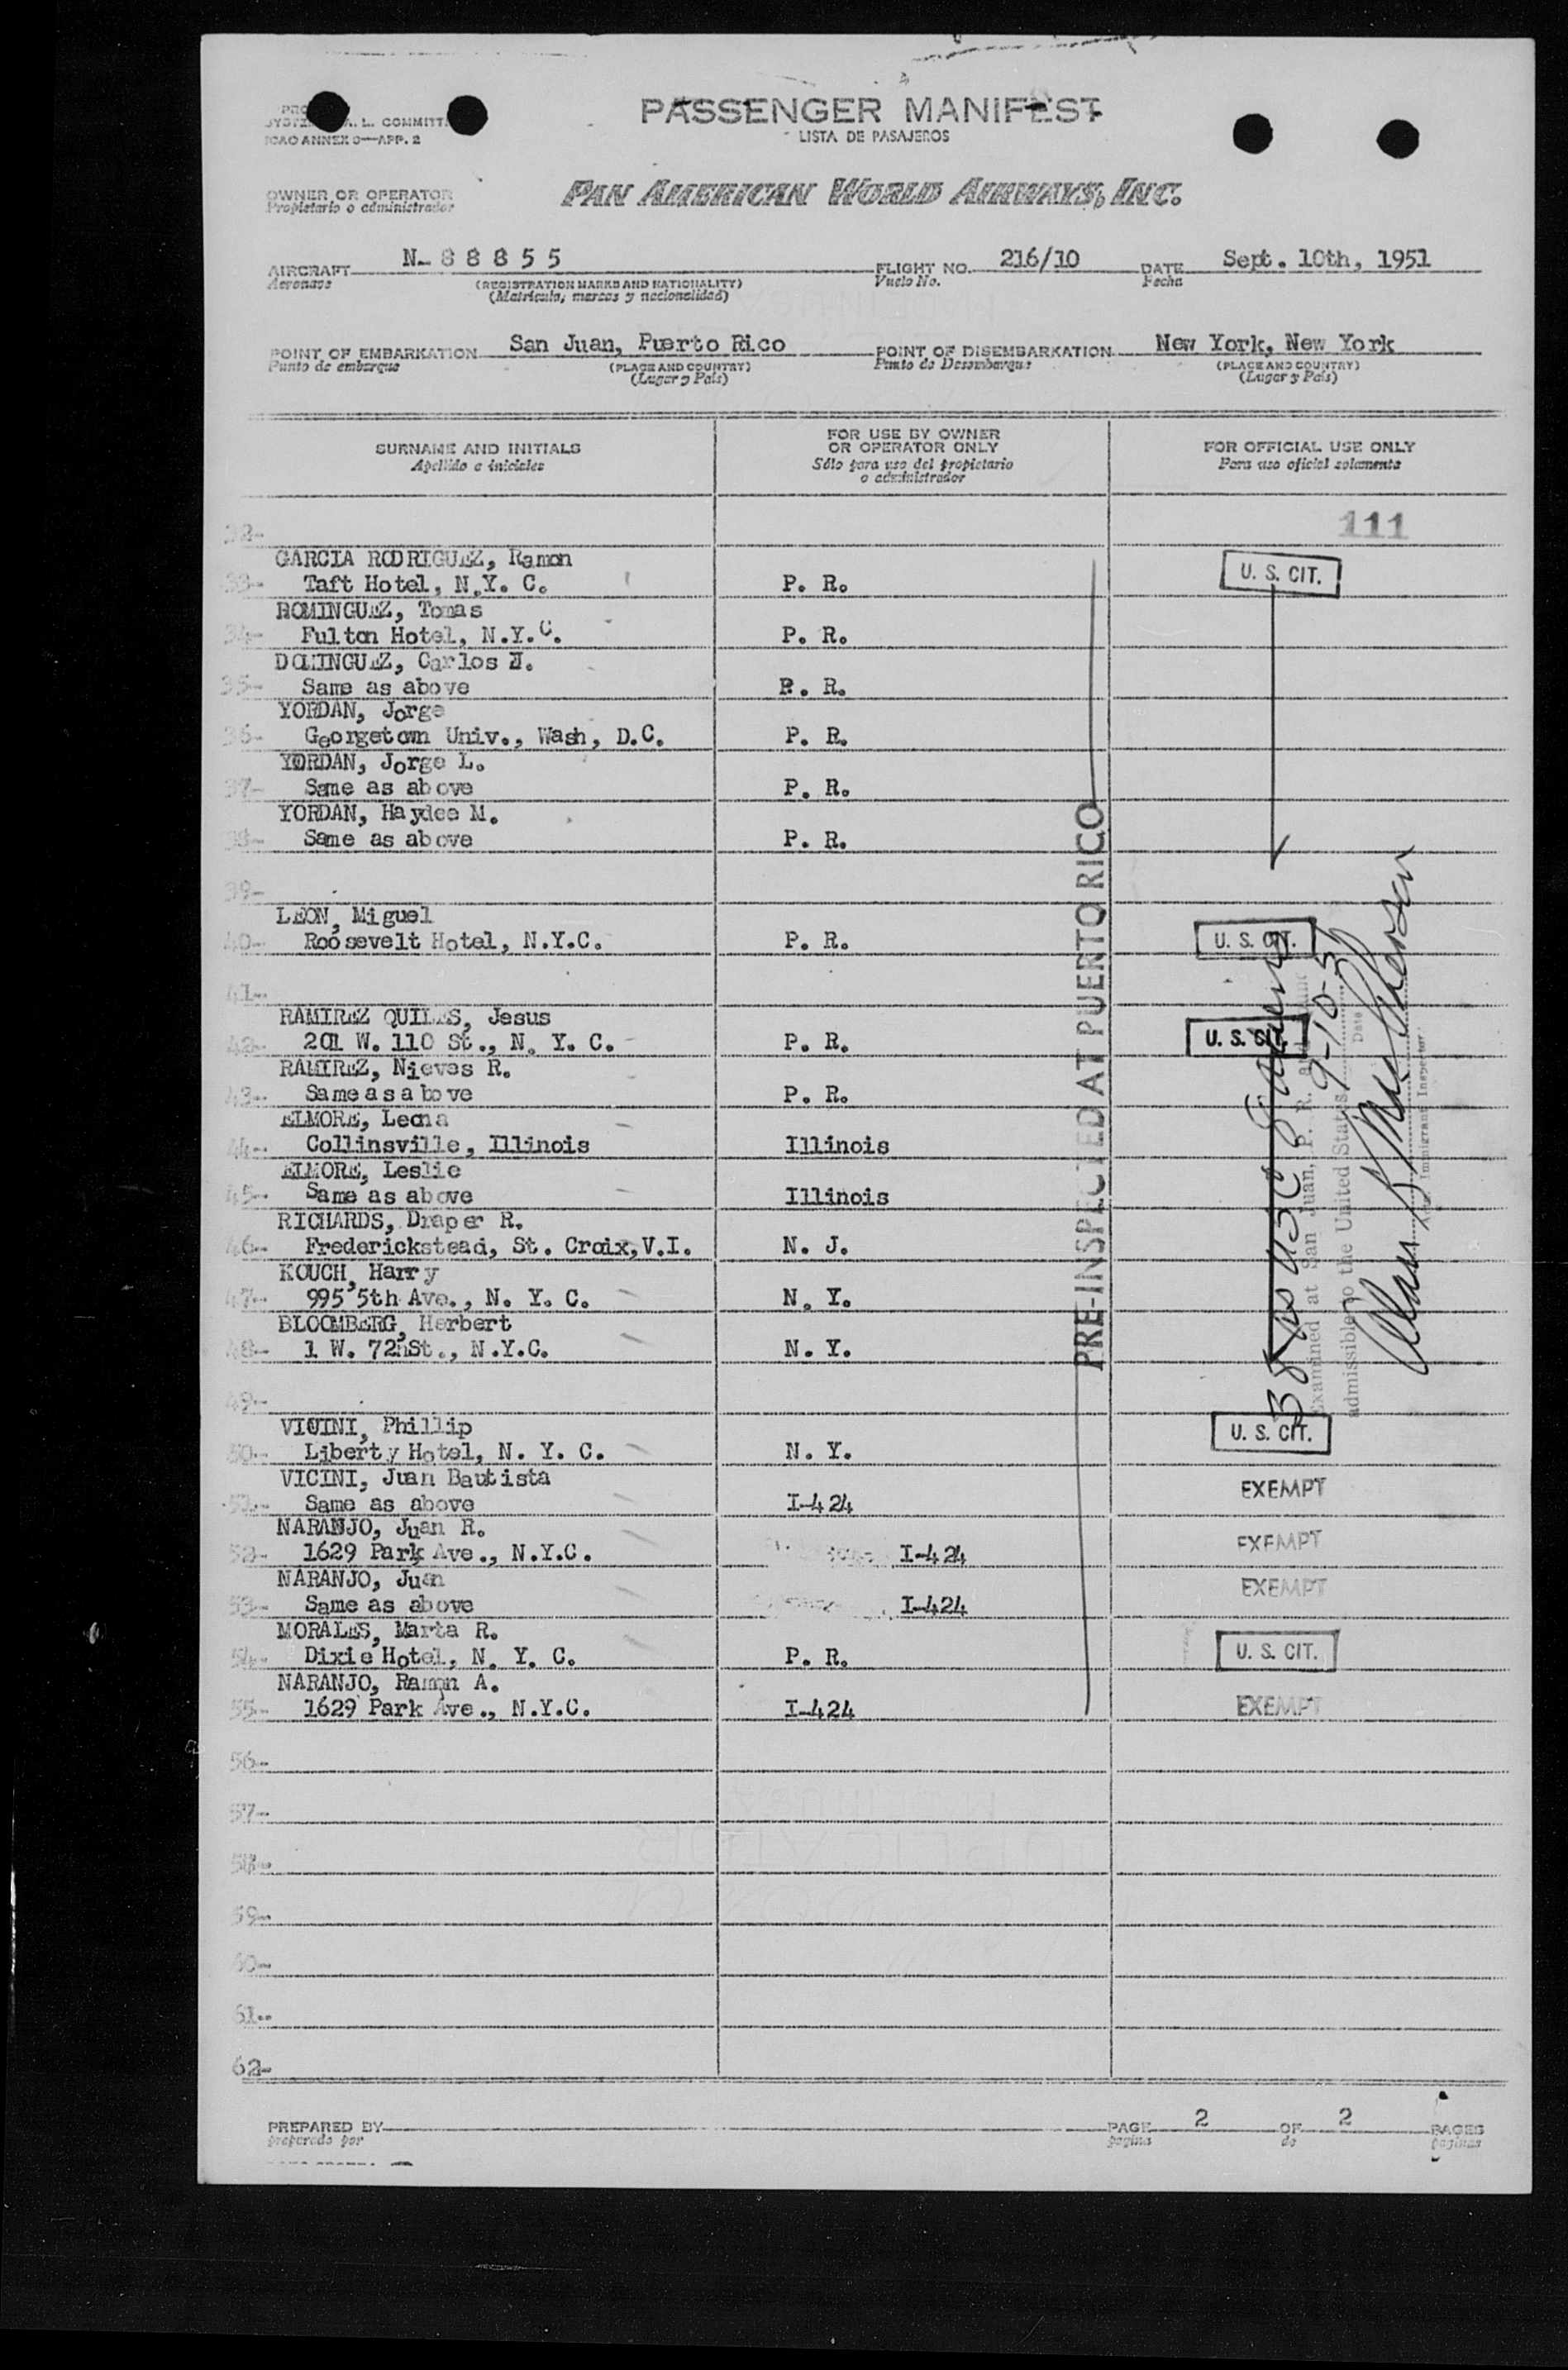 PASSENGER MANIFEST
LISTA DE PASAJEROS
ICAO ANNEX 9—APP. 2
OWNER OR OPERATOR
Propietario o administrador
PAN AMERICAN WORLD AIRWAYS, INC.
AIRCRAFT N-88855 FLIGHT NO. 216/10 DATE Sept. 10th, 1951
Aeronave (REGISTRATION MARKS AND NATIONALITY) Vuelo No. Fecha
(Matricula, marcas y nacionalidad)
POINT OF EMBARKATION San Juan, Puerto Rico POINT OF DISEMBARKATION New York, New York
Punto de embarque (PLACE AND COUNTRY) Punto de Desembarque (PLACE AND COUNTRY)
(Lugar y Pais) (Lugar y Pais)
SURNAME AND INITIALS FOR USE BY OWNER OR OPERATOR ONLY FOR OFFICIAL USE ONLY
Apellido e iniciales Sólo para uso del propietario o administrador Para uso oficial solamente
32- 111
GARCIA RODRIGUEZ, Ramon
33- Taft Hotel, N.Y. C. P. R. U. S. CIT.
ROMINGUEZ, Tomas
34- Fulton Hotel, N.Y.C. P. R.
DOMINGUEZ, Carlos
35- Same as above P. R.
YORDAN, Jorge
36- Georgetown Univ., Wash, D.C. P. R.
YORDAN, Jorge L.
37- Same as above P. R.
YORDAN, Haydee M.
38- Same as above P. R.
39-
LEON, Miguel
40- Roosevelt Hotel, N.Y.C. P. R. U. S. CIT.
41-
RAMIREZ QUILES, Jesus
42- 201 W. 110 St., N. Y. C. P. R. U. S. CIT.
RAMIREZ, Nieves R.
43- Same as above P. R.
ELMORE, Leona
44- Collinsville, Illinois Illinois
ELMORE, Leslie
45- Same as above Illinois
RICHARDS, Draper R.
46- Frederickstead, St. Croix,V.I. N. J.
KOUCH, Harry
47- 995 5th Ave., N. Y. C. N. Y.
BLOOMBERG, Herbert
48- 1 W. 72nSt., N.Y.C. N. Y.
49-
VICINI, Phillip
50- Liberty Hotel, N. Y. C. N. Y. U. S. CIT.
VICINI, Juan Bautista
51- Same as above I-424 EXEMPT
NARANJO, Juan R.
52- 1629 Park Ave., N.Y.C. I-424 EXEMPT
NARANJO, Juan
53- Same as above I-424 EXEMPT
MORALES, Marta R.
54- Dixie Hotel, N. Y. C. P. R. U. S. CIT.
NARANJO, Ramon A.
55- 1629 Park Ave., N.Y.C. I-424 EXEMPT
56-
57-
58-
59-
60-
61-
62-
PRE-INSPECTED AT PUERTO RICO
38
USC
Examined at San Juan, P. R. and
admissible to the United States 9-10-51
Date
Immigrant Inspector
PREPARED BY PAGE 2 OF 2 PAGES
preparado por pagina de paginas